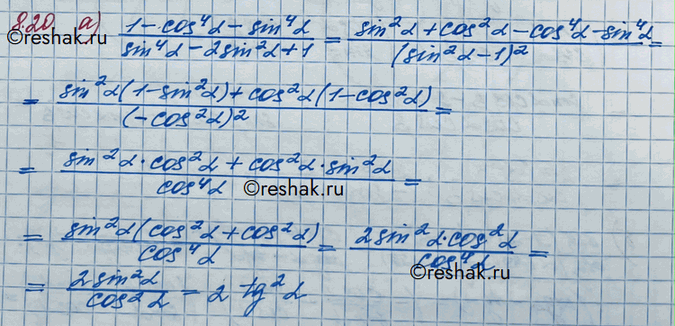 8.20. а) (1 - cos⁴α - sin⁴α)/(sin⁴α - 2sin²α + 1) = (sin²α + cos²α - cos⁴α - sin⁴α)/(sin²α - 1)² =
= (sin²α(1 - sin²α) + cos²α(1 - cos²α))/(-cos²α)² =
= (sin²α · cos²α + cos²α · sin²α)/cos⁴α =
©reshak.ru
= (sin²α(cos²α + cos²α))/cos⁴α = (2sin²α · cos²α)/cos⁴α =
©reshak.ru
= 2sin²α/cos²α = 2 tg²α